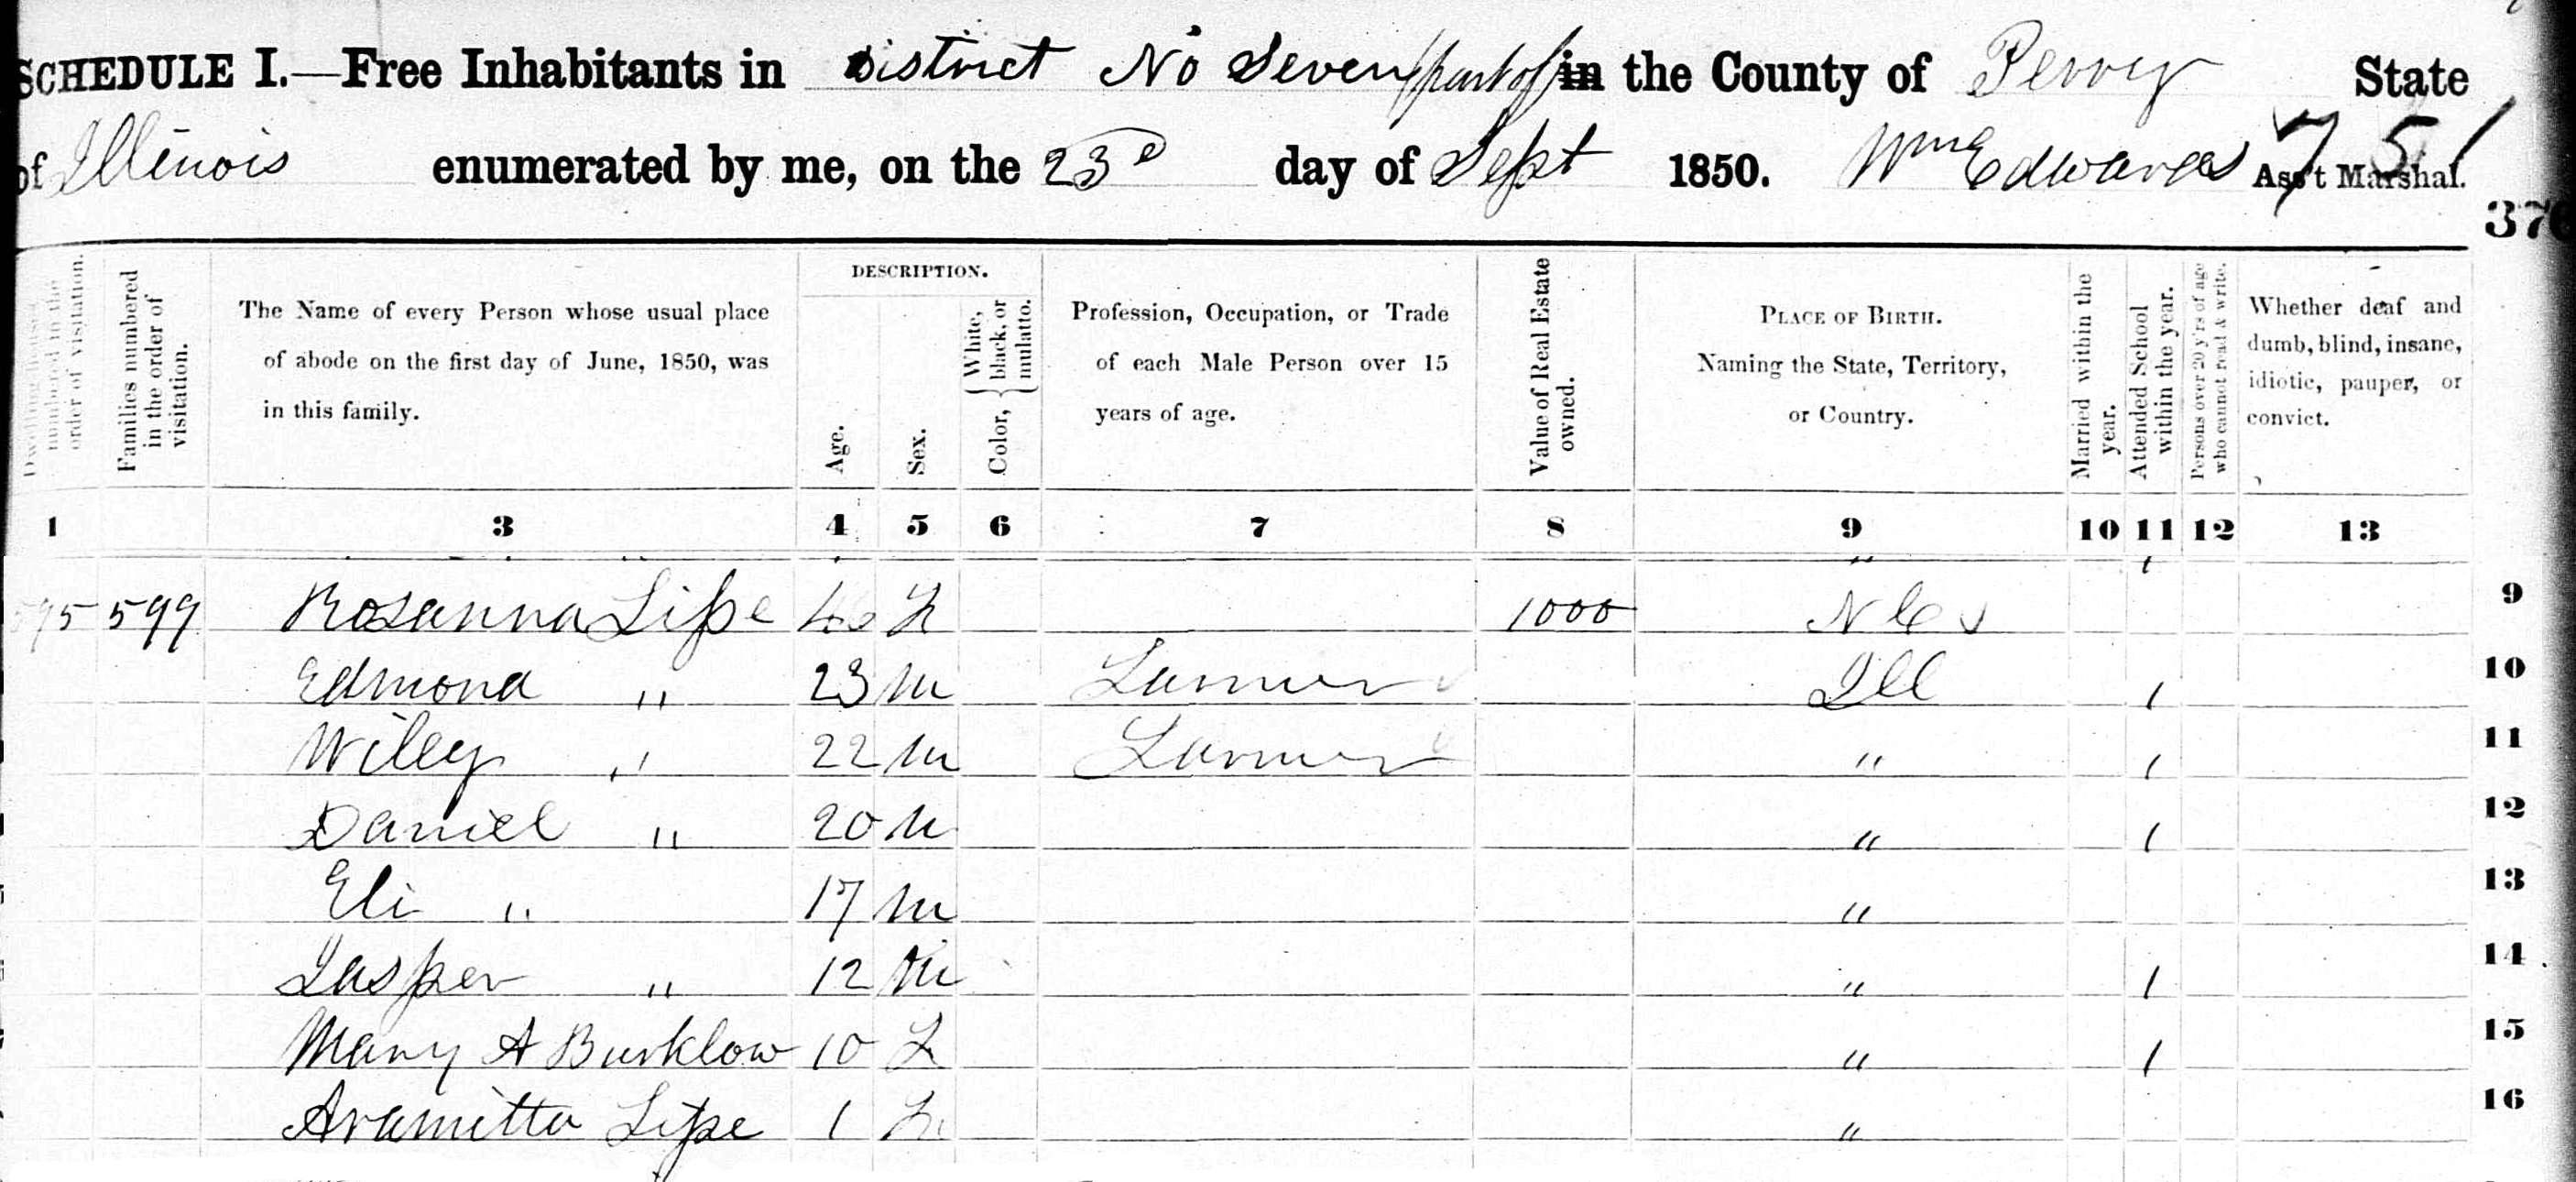 SCHEDULE I.—Free Inhabitants in District No Seven (part of) in the County of Perry State
of Illinois enumerated by me, on the 23d day of Sept 1850. Wm Edwards Ass't Marshal.
751
376
Dwelling-houses numbered in the order of visitation.
Families numbered in the order of visitation.
The Name of every Person whose usual place of abode on the first day of June, 1850, was in this family.
DESCRIPTION.
Age.
Sex.
Color, { White, black, or mulatto.
Profession, Occupation, or Trade of each Male Person over 15 years of age.
Value of Real Estate owned.
PLACE OF BIRTH. Naming the State, Territory, or Country.
Married within the year.
Attended School within the year.
Persons over 20 y'rs of age who cannot read & write.
Whether deaf and dumb, blind, insane, idiotic, pauper, or convict.
1 3 4 5 6 7 8 9 10 11 12 13
595 599 Rosanna Lipe F 1000 N C 9
Edmond " 23 M Farmer Ill 1 10
Wiley " 22 M Farmer " 1 11
Daniel " 20 M " 1 12
Eli " 17 M " 13
Jasper " 12 M " 1 14
Mary A Burklow 10 F " 1 15
Aramitta Lipe 1 F " 16